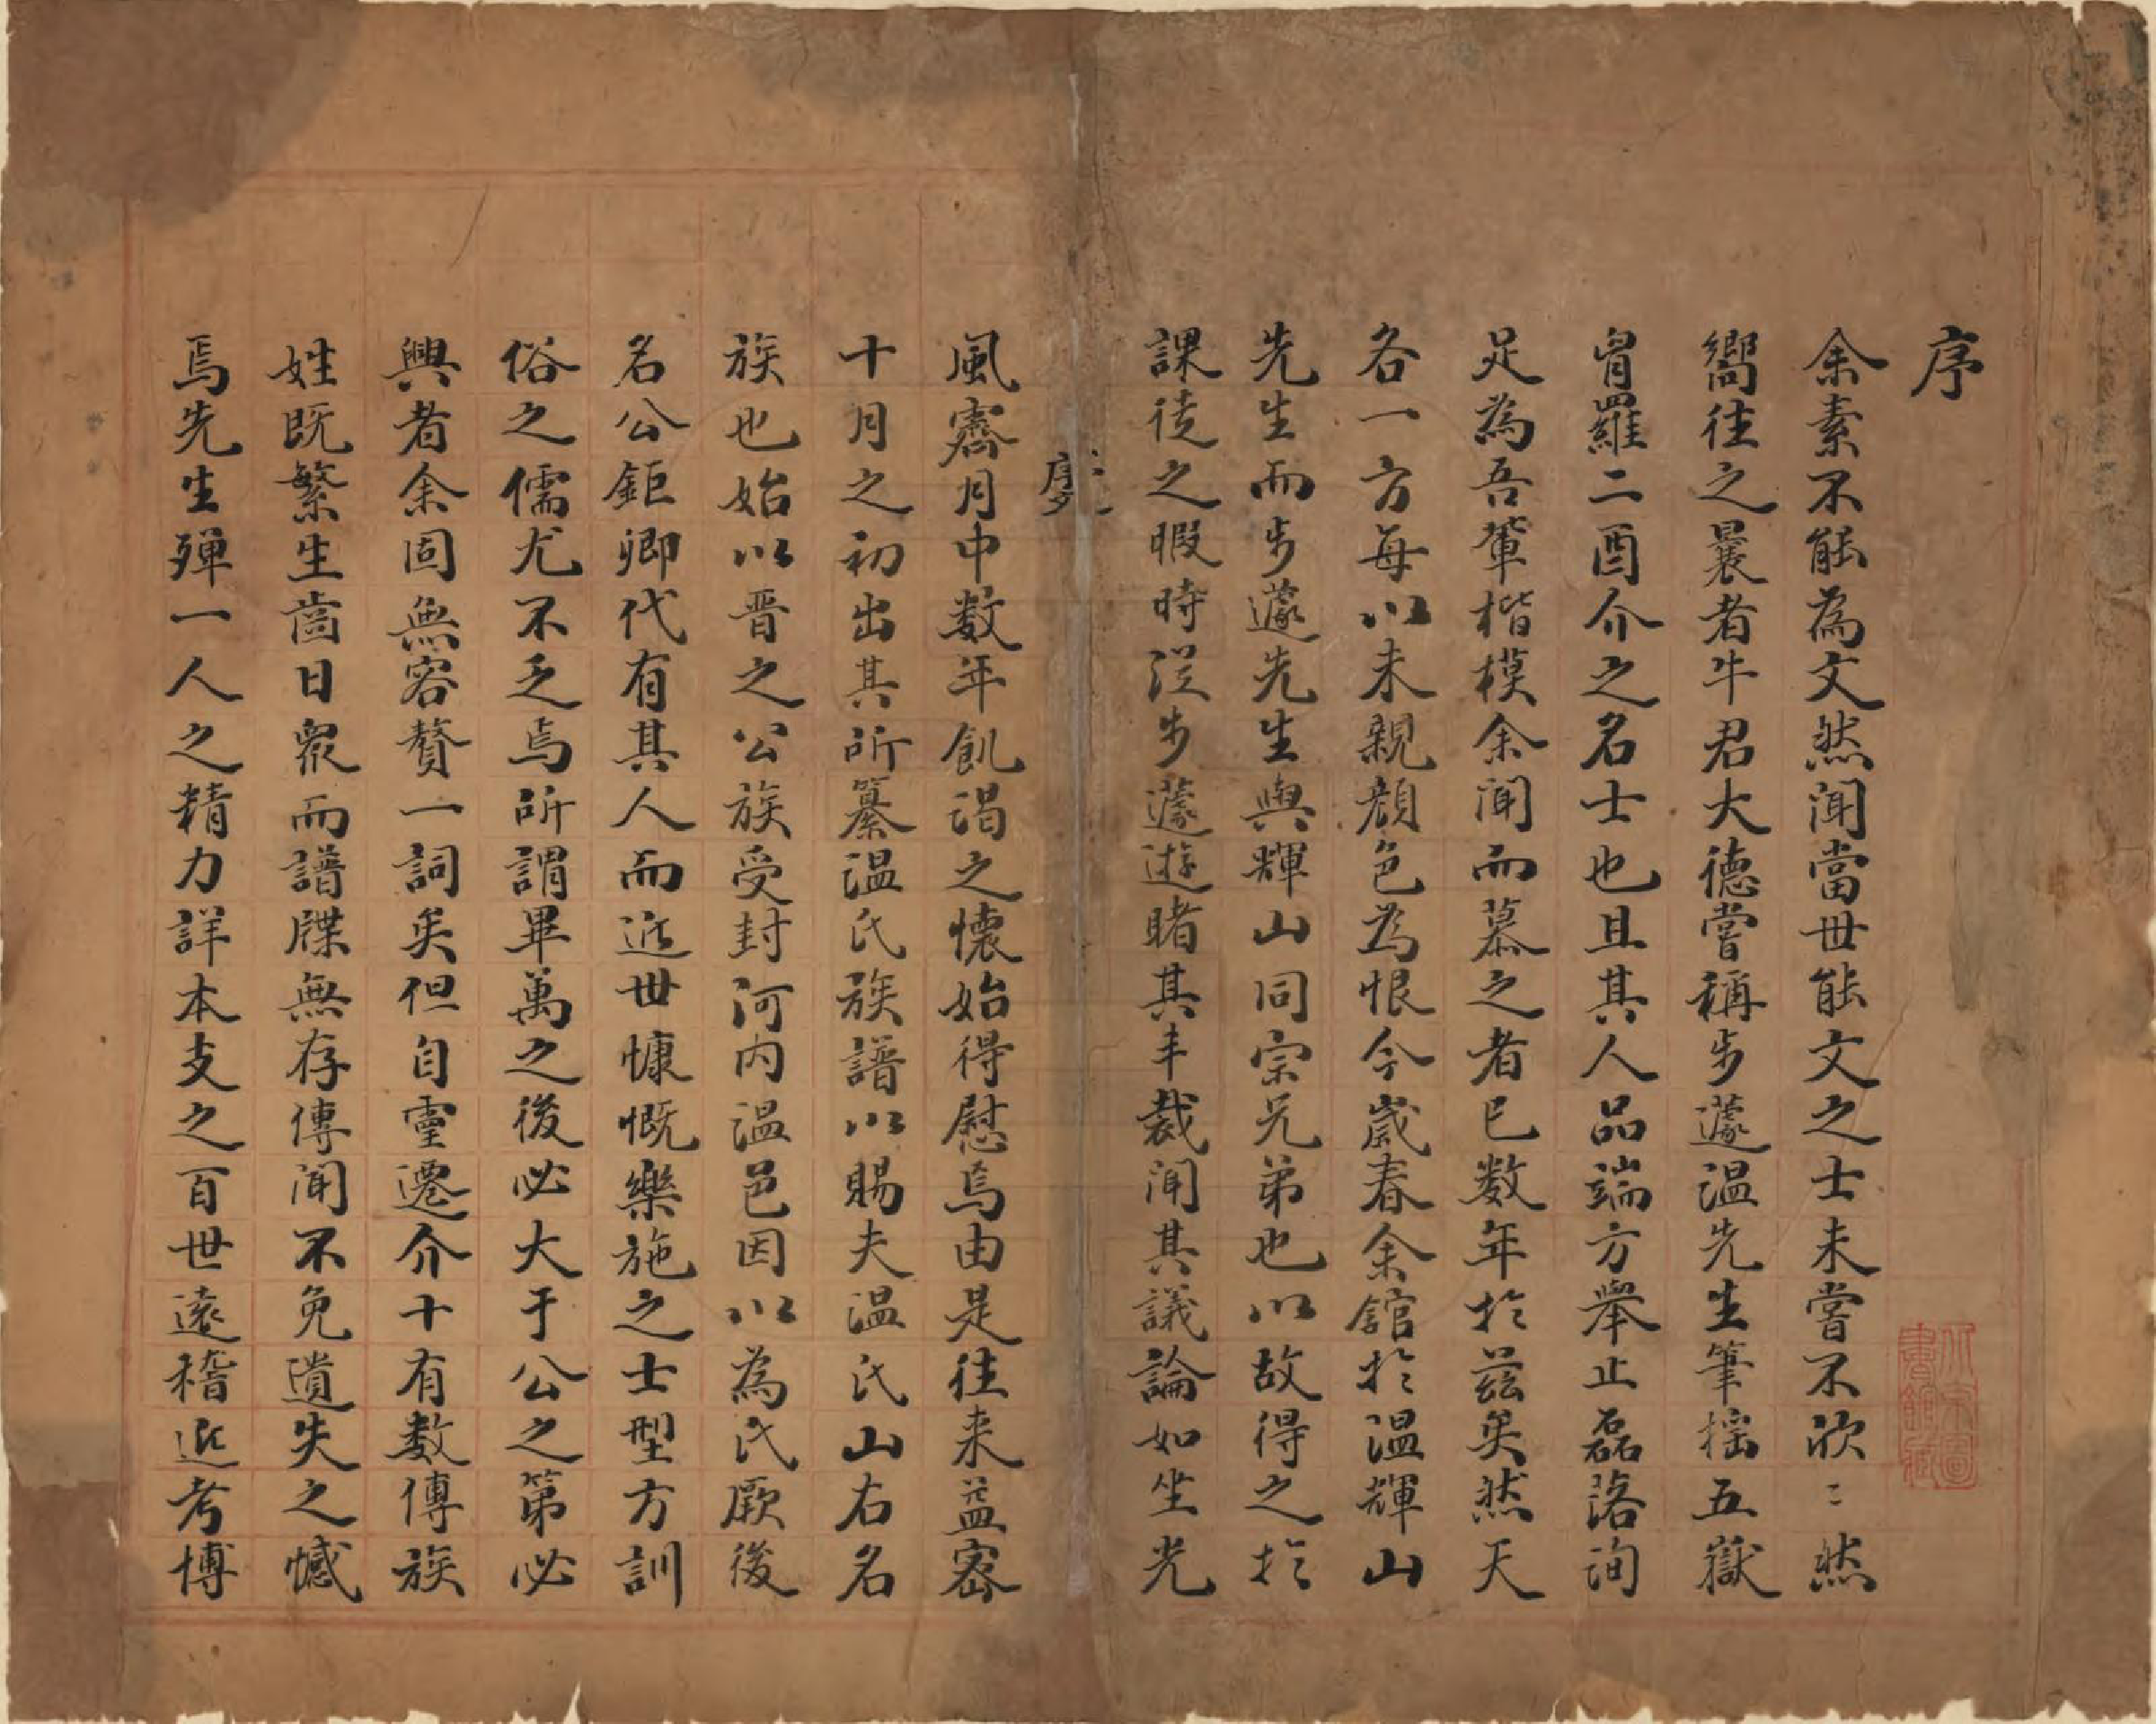 序
余素不能為文然聞當世能文之士未嘗不欣〻然
嚮往之曩者牛君大德嘗稱步蘧温先生筆摇五嶽
胷羅二酉介之名士也且其人品端方舉止磊落洵
足為吾輩楷模余聞而慕之者已数年於兹矣然天
各一方每以未親顔色為恨今歲春余舘於温輝山
先生而步蘧先生與輝山同宗兄弟也以故得之於
課徒之暇時從步蘧遊睹其丰裁聞其議論如坐光
序
風霽月中数年飢渴之懷始得慰焉由是往来益密
十月之初出其所纂温氏族譜以賜夫温氏山右名
族也始以晋之公族受封河内温邑因以為氏厥後
名公鉅卿代有其人而近世慷慨樂施之士型方訓
俗之儒尤不乏焉所謂畢萬之後必大于公之第必
興者余固無容贅一詞矣但自靈遷介十有数傳族
姓既繁生齒日衆而譜牒無存傳聞不免遺失之憾
焉先生殫一人之精力詳本支之百世遠稽近考博